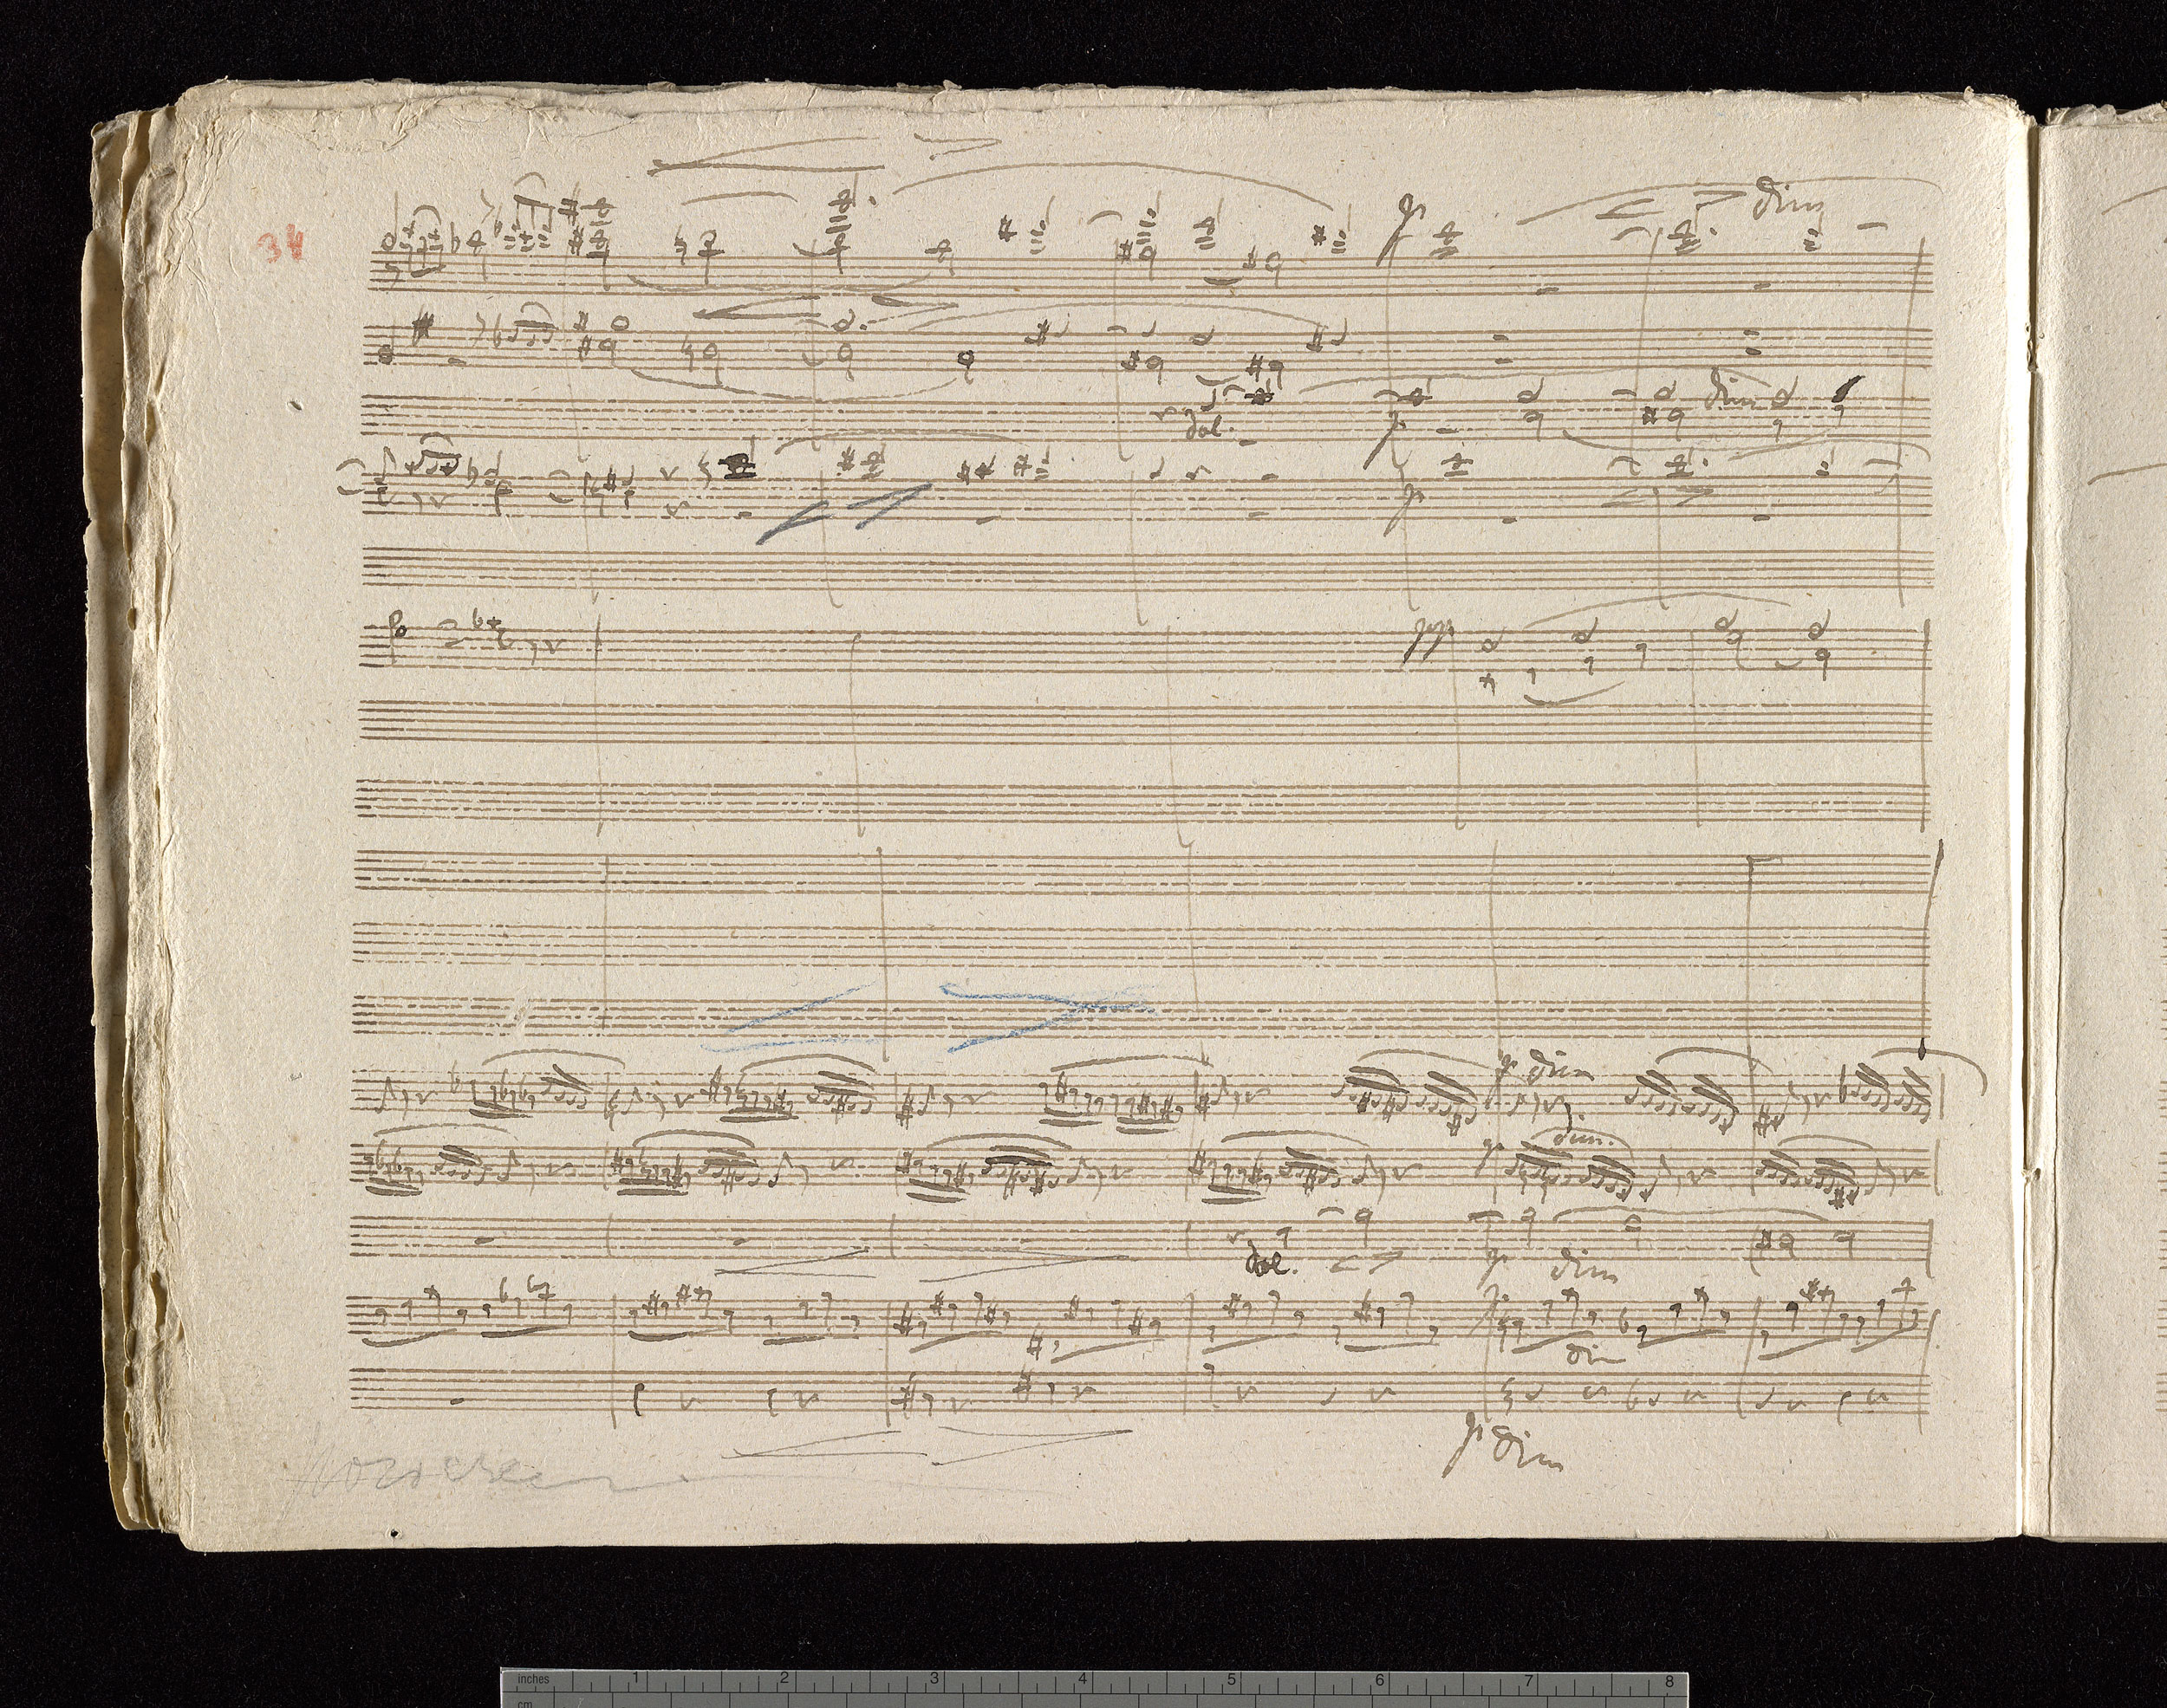 34
dim
p
dol.
dim
p
p
pp
p dim
p dim.
dol.
p dim
p
dim
p dim
inches 1 2 3 4 5 6 7 8
cm